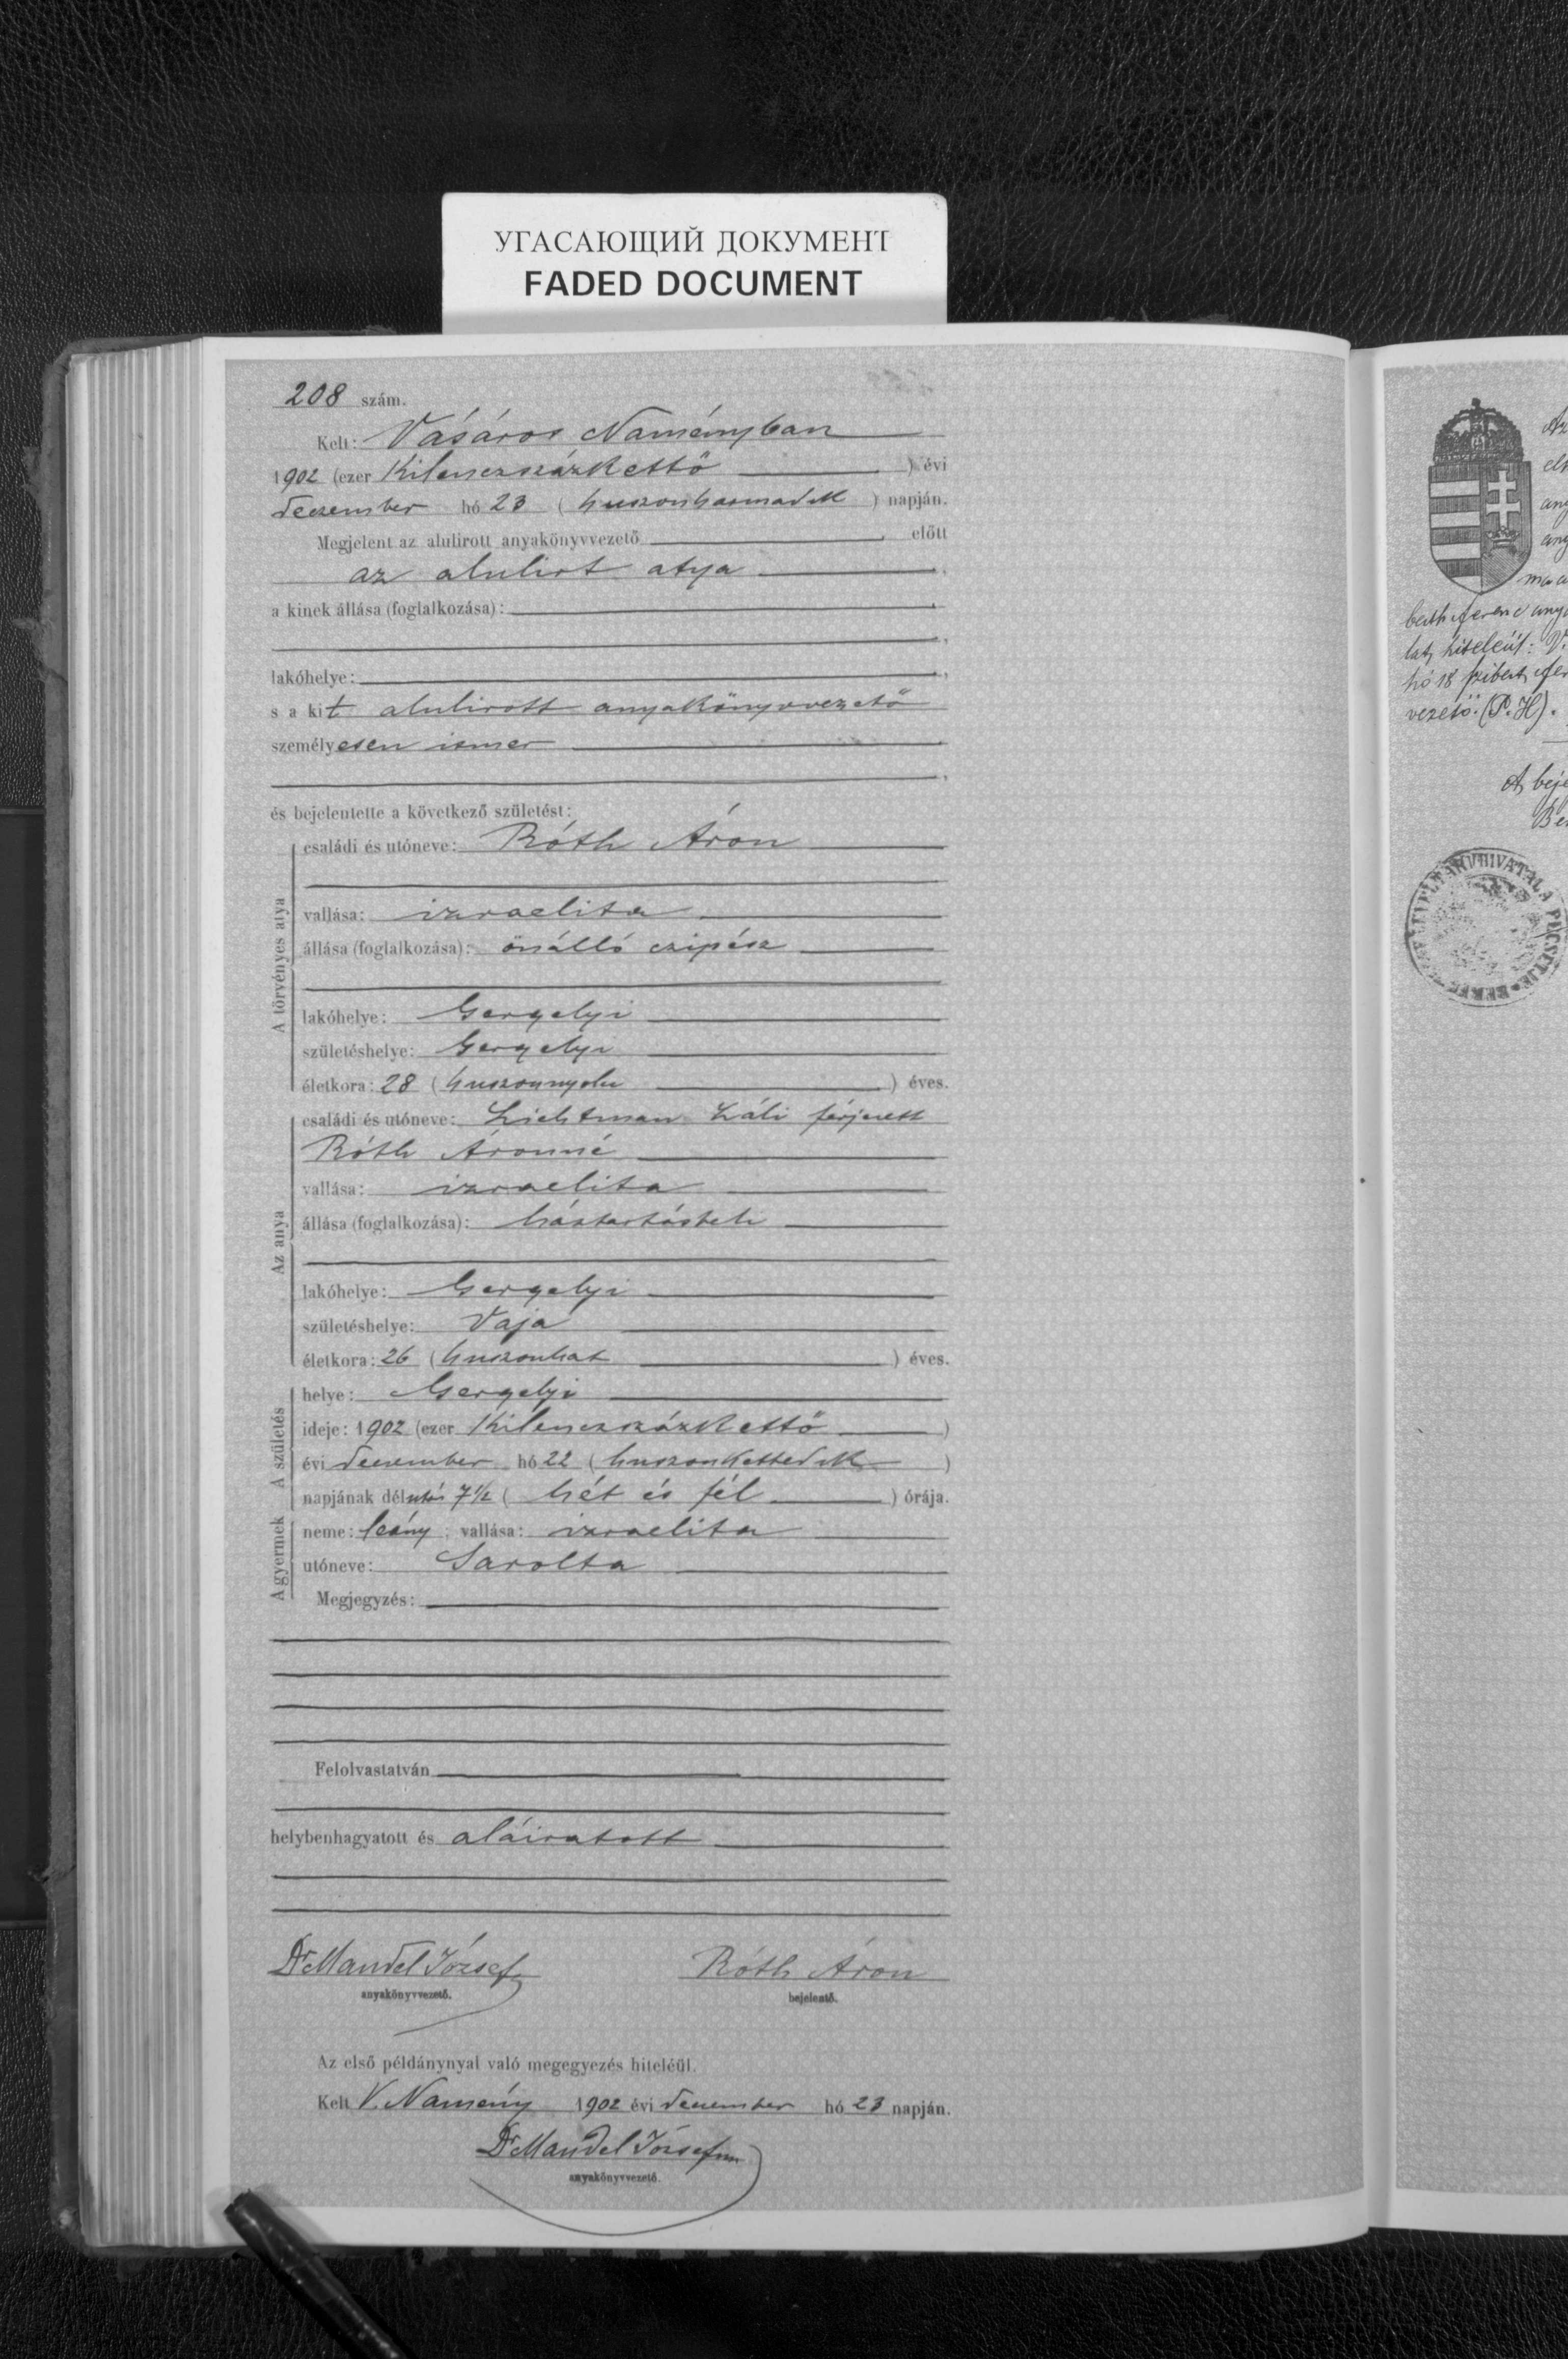 УГАСАЮЩИЙ ДОКУМЕНТ
FADED DOCUMENT
208 szám.
Kelt: Vásáros Naményban
1902 (ezer kilenczszázkettő) évi
deczember hó 23 (huszonharmadik) napján.
Megjelent az alulirott anyakönyvvezető előtt
az alulirt atya
a kinek állása (foglalkozása):
lakóhelye:
s a kit alulirott anyakönyvvezető
személyesen ismer
és bejelentette a következő születést:
A törvényes atya
családi és utóneve: Róth Áron
vallása: izraelita
állása (foglalkozása): önálló czipész
lakóhelye: Gergelyi
születéshelye: Gergelyi
életkora: 28 (huszonnyolc) éves.
Az anya
családi és utóneve: Lichtman Láli férjezett
Róth Áronné
vallása: izraelita
állása (foglalkozása): háztartásbeli
lakóhelye: Gergelyi
születéshelye: Vaja
életkora: 26 (huszonhat) éves.
A születés
helye: Gergelyi
ideje: 1902 (ezer kilenczszázkettő)
évi deczember hó 22 (huszonkettedik)
napjának délután 7 1/2 (hét és fél) órája.
A gyermek
neme: leány; vallása: izraelita
utóneve: Sarolta
Megjegyzés:
Felolvastatván
helybenhagyatott és aláiratott
Dr Mandel József Róth Áron
anyakönyvvezető. bejelentő.
Az első példánynyal való megegyezés hiteléül.
Kelt V. Namény 1902 évi deczember hó 23 napján.
Dr Mandel József
anyakönyvvezető.
beth ferenc
lat, hiteléül: V.
hó 18
vezető: (P. H).
A beje
PECSÉTJE